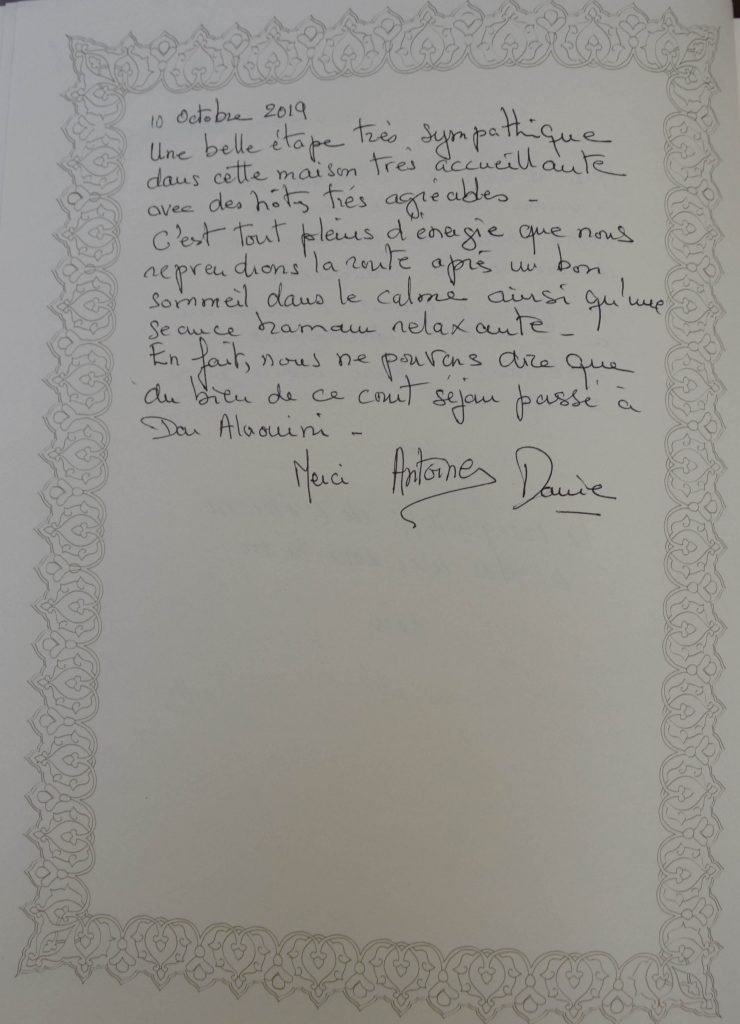 10 Octobre 2019
Une belle étape très sympathique
dans cette maison très accueillante
avec des hôtes trés agréables -
C'est tout pleins d'énergie que nous
reprendrions la route après un bon
sommeil dans le calme ainsi qu'une
seance hamam relaxante -
En fait, nous ne pouvons dire que
du bien de ce court séjour passé à
Dar Alaouini -
Merci Antoine